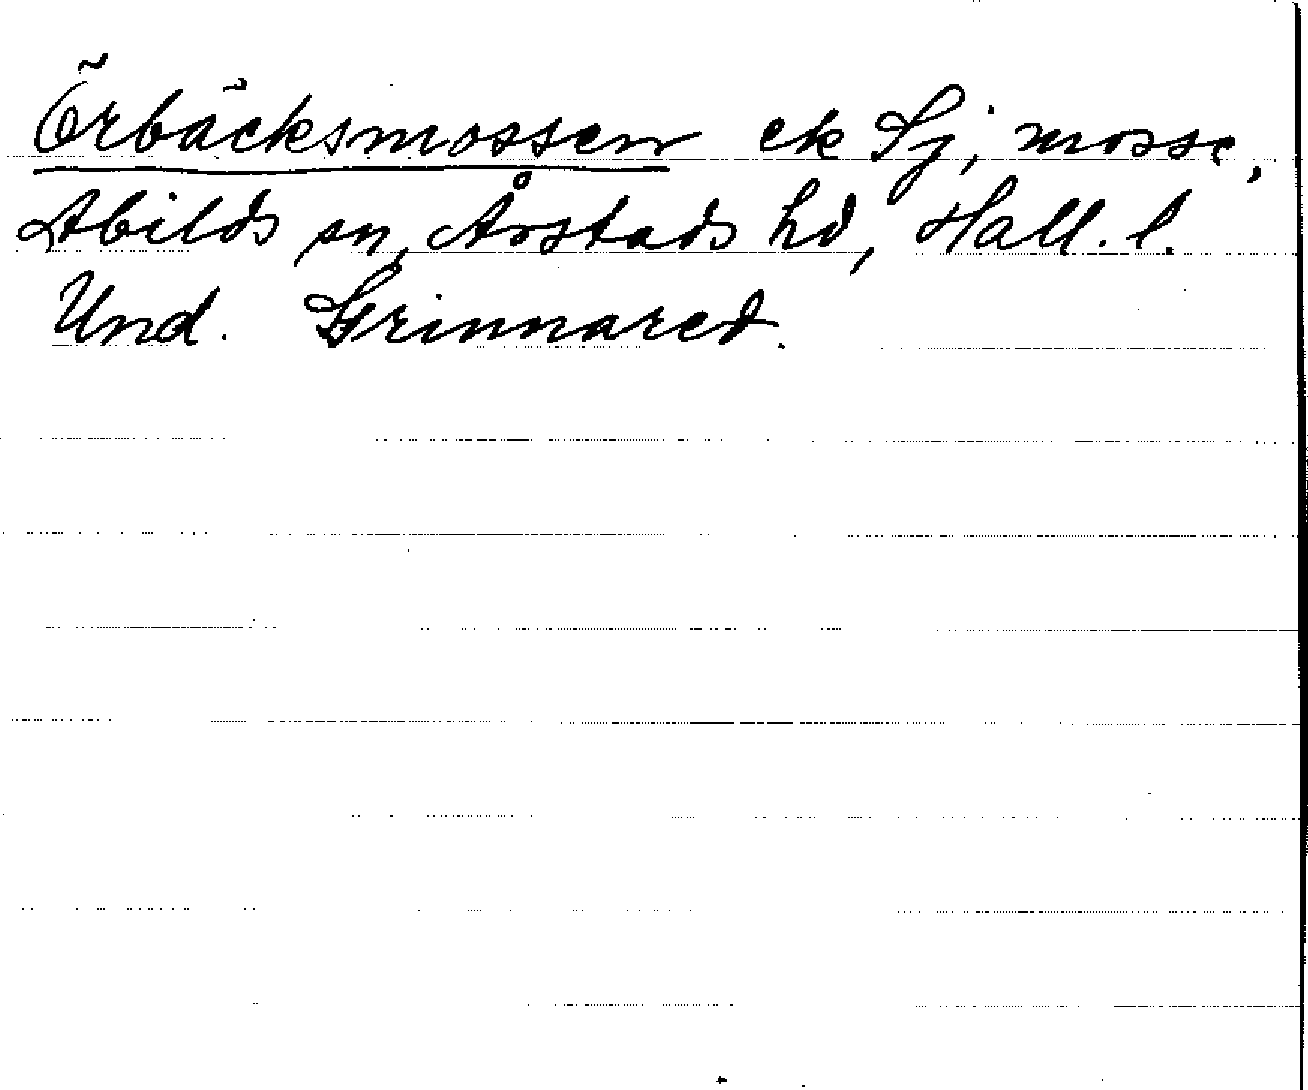 Örbäcksmossen ek Sj, mosse,
Abilds sn, Årstads hd, Hall. l.
Und. Grinnared.